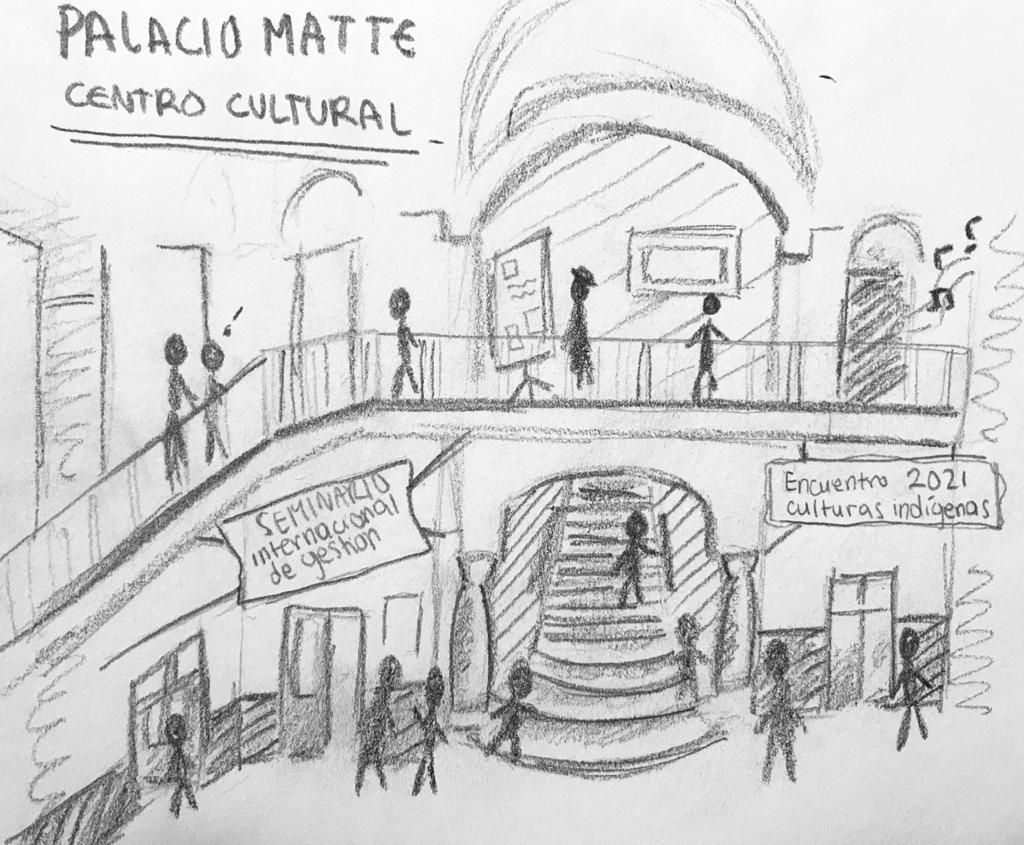 PALACIO MATTE
CENTRO CULTURAL
SEMINARIO
internacional
de gestion
Encuentro 2021
culturas indígenas